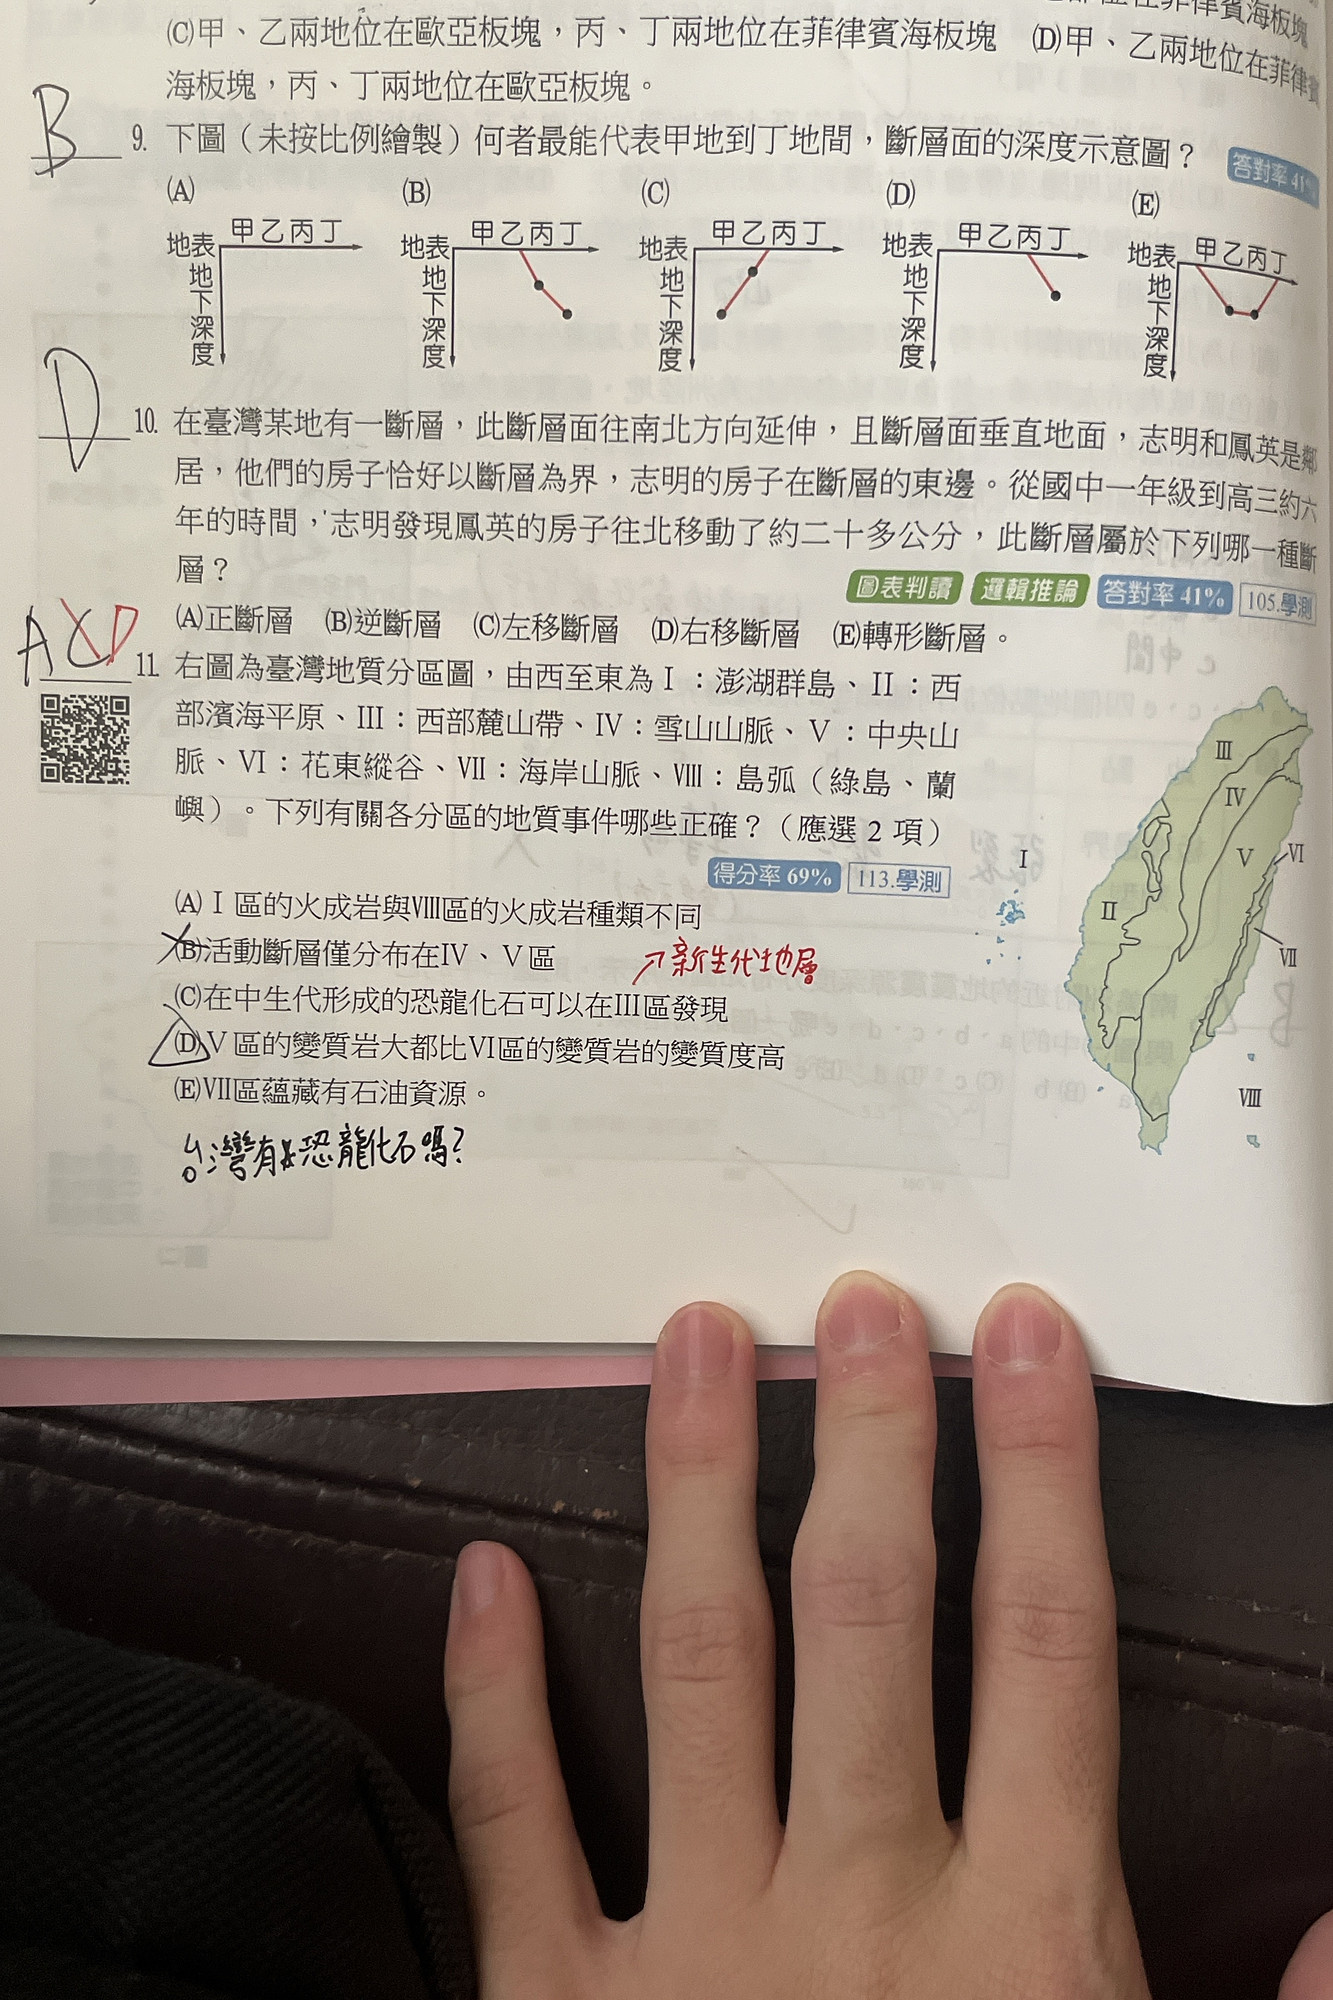 (C)甲、乙兩地位在歐亞板塊，丙、丁兩地位在菲律賓海板塊　(D)甲、乙兩地位在菲律賓
海板塊，丙、丁兩地位在歐亞板塊。
B
9. 下圖（未按比例繪製）何者最能代表甲地到丁地間，斷層面的深度示意圖？
答對率 41%
(A) (B) (C) (D) (E)
甲乙丙丁 甲乙丙丁 甲乙丙丁 甲乙丙丁 甲乙丙丁
地表 地表 地表 地表 地表
地下深度 地下深度 地下深度 地下深度 地下深度
D
10. 在臺灣某地有一斷層，此斷層面往南北方向延伸，且斷層面垂直地面，志明和鳳英是鄰
居，他們的房子恰好以斷層為界，志明的房子在斷層的東邊。從國中一年級到高三約六
年的時間，志明發現鳳英的房子往北移動了約二十多公分，此斷層屬於下列哪一種斷
層？
圖表判讀 邏輯推論 答對率 41% 105.學測
(A)正斷層　(B)逆斷層　(C)左移斷層　(D)右移斷層　(E)轉形斷層。
ACD
11. 右圖為臺灣地質分區圖，由西至東為Ⅰ：澎湖群島、Ⅱ：西
部濱海平原、Ⅲ：西部麓山帶、Ⅳ：雪山山脈、Ⅴ：中央山
脈、Ⅵ：花東縱谷、Ⅶ：海岸山脈、Ⅷ：島弧（綠島、蘭
嶼）。下列有關各分區的地質事件哪些正確？（應選 2 項）
得分率 69% 113.學測
(A)Ⅰ區的火成岩與Ⅷ區的火成岩種類不同
(B)活動斷層僅分布在Ⅳ、Ⅴ區
新生代地層
(C)在中生代形成的恐龍化石可以在Ⅲ區發現
(D)Ⅴ區的變質岩大都比Ⅵ區的變質岩的變質度高
(E)Ⅶ區蘊藏有石油資源。
台灣有恐龍化石嗎？
Ⅲ
Ⅳ
Ⅰ
Ⅴ
Ⅵ
Ⅱ
Ⅶ
Ⅷ